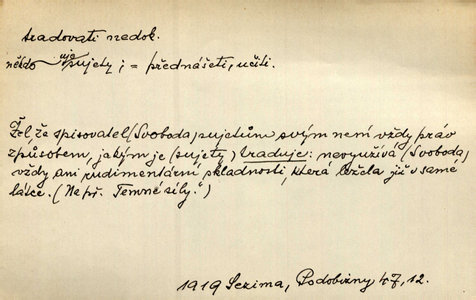 tradovati nedok.
někdo uje sujety; = přednášeti, učiti.
Žel že spisovatel (Svoboda) sujetům svým není vždy práv
způsobem, jakým je (sujety) traduje: nevyužívá (Svoboda)
vždy ani rudimentární skladnosti, která ležela již v samé
látce. (Např. "Temné síly.")
1919 Sezima, Podobizny 47, 12.